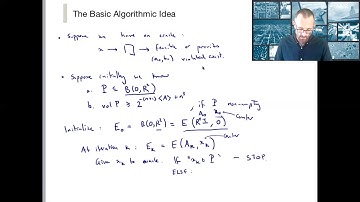 The Basic Algorithmic Idea
• Suppose we have an oracle:
x → → Feasible or provides
(a_i, b_i) violated const.
• Suppose initially we know
a. P ⊆ B(0, R²)
, if P nonempty
Initialize: E₀ = B(0, R²) = E(R²I, 0)
center
At iteration k: E_k = E(A_k, x_k)
center
Give x_k to oracle. If "x_k ∈ P" – STOP.
ELSE: